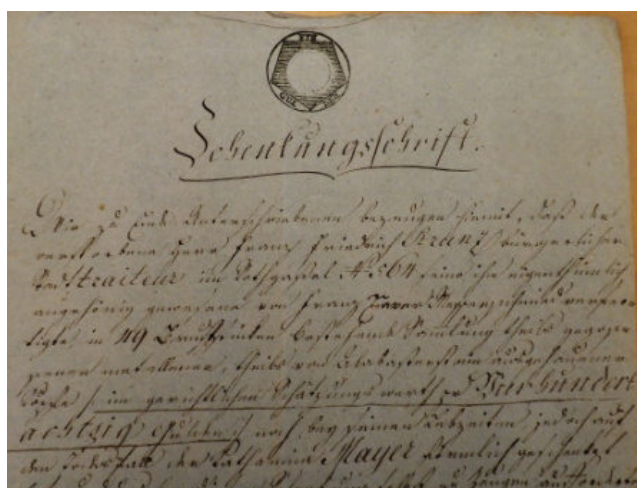 Schenkungsschrift.
Wir zu Ende Unterschriebenen bezeugen hiemit, daß der
verstorbene Herr Franz Friedrich Stranz bürgerlicher
Traiteur im N: 564 seine ihm eigenthümlich
angehörig gewesene von Franz Xaver Messerschmidt verfer
tigte in 49 Bruststücken bestehende Sammlung theils gegoss
ener metallener, theils von Alabasterstein ausgehauener
Köpfe /: im gerichtlichen Schätzungswerth pr Vierhundert
achtzig Gulden :/ noch bey seinen Lebzeiten, jedoch auf
den Todesfall der Katharina Mayer geschenkt